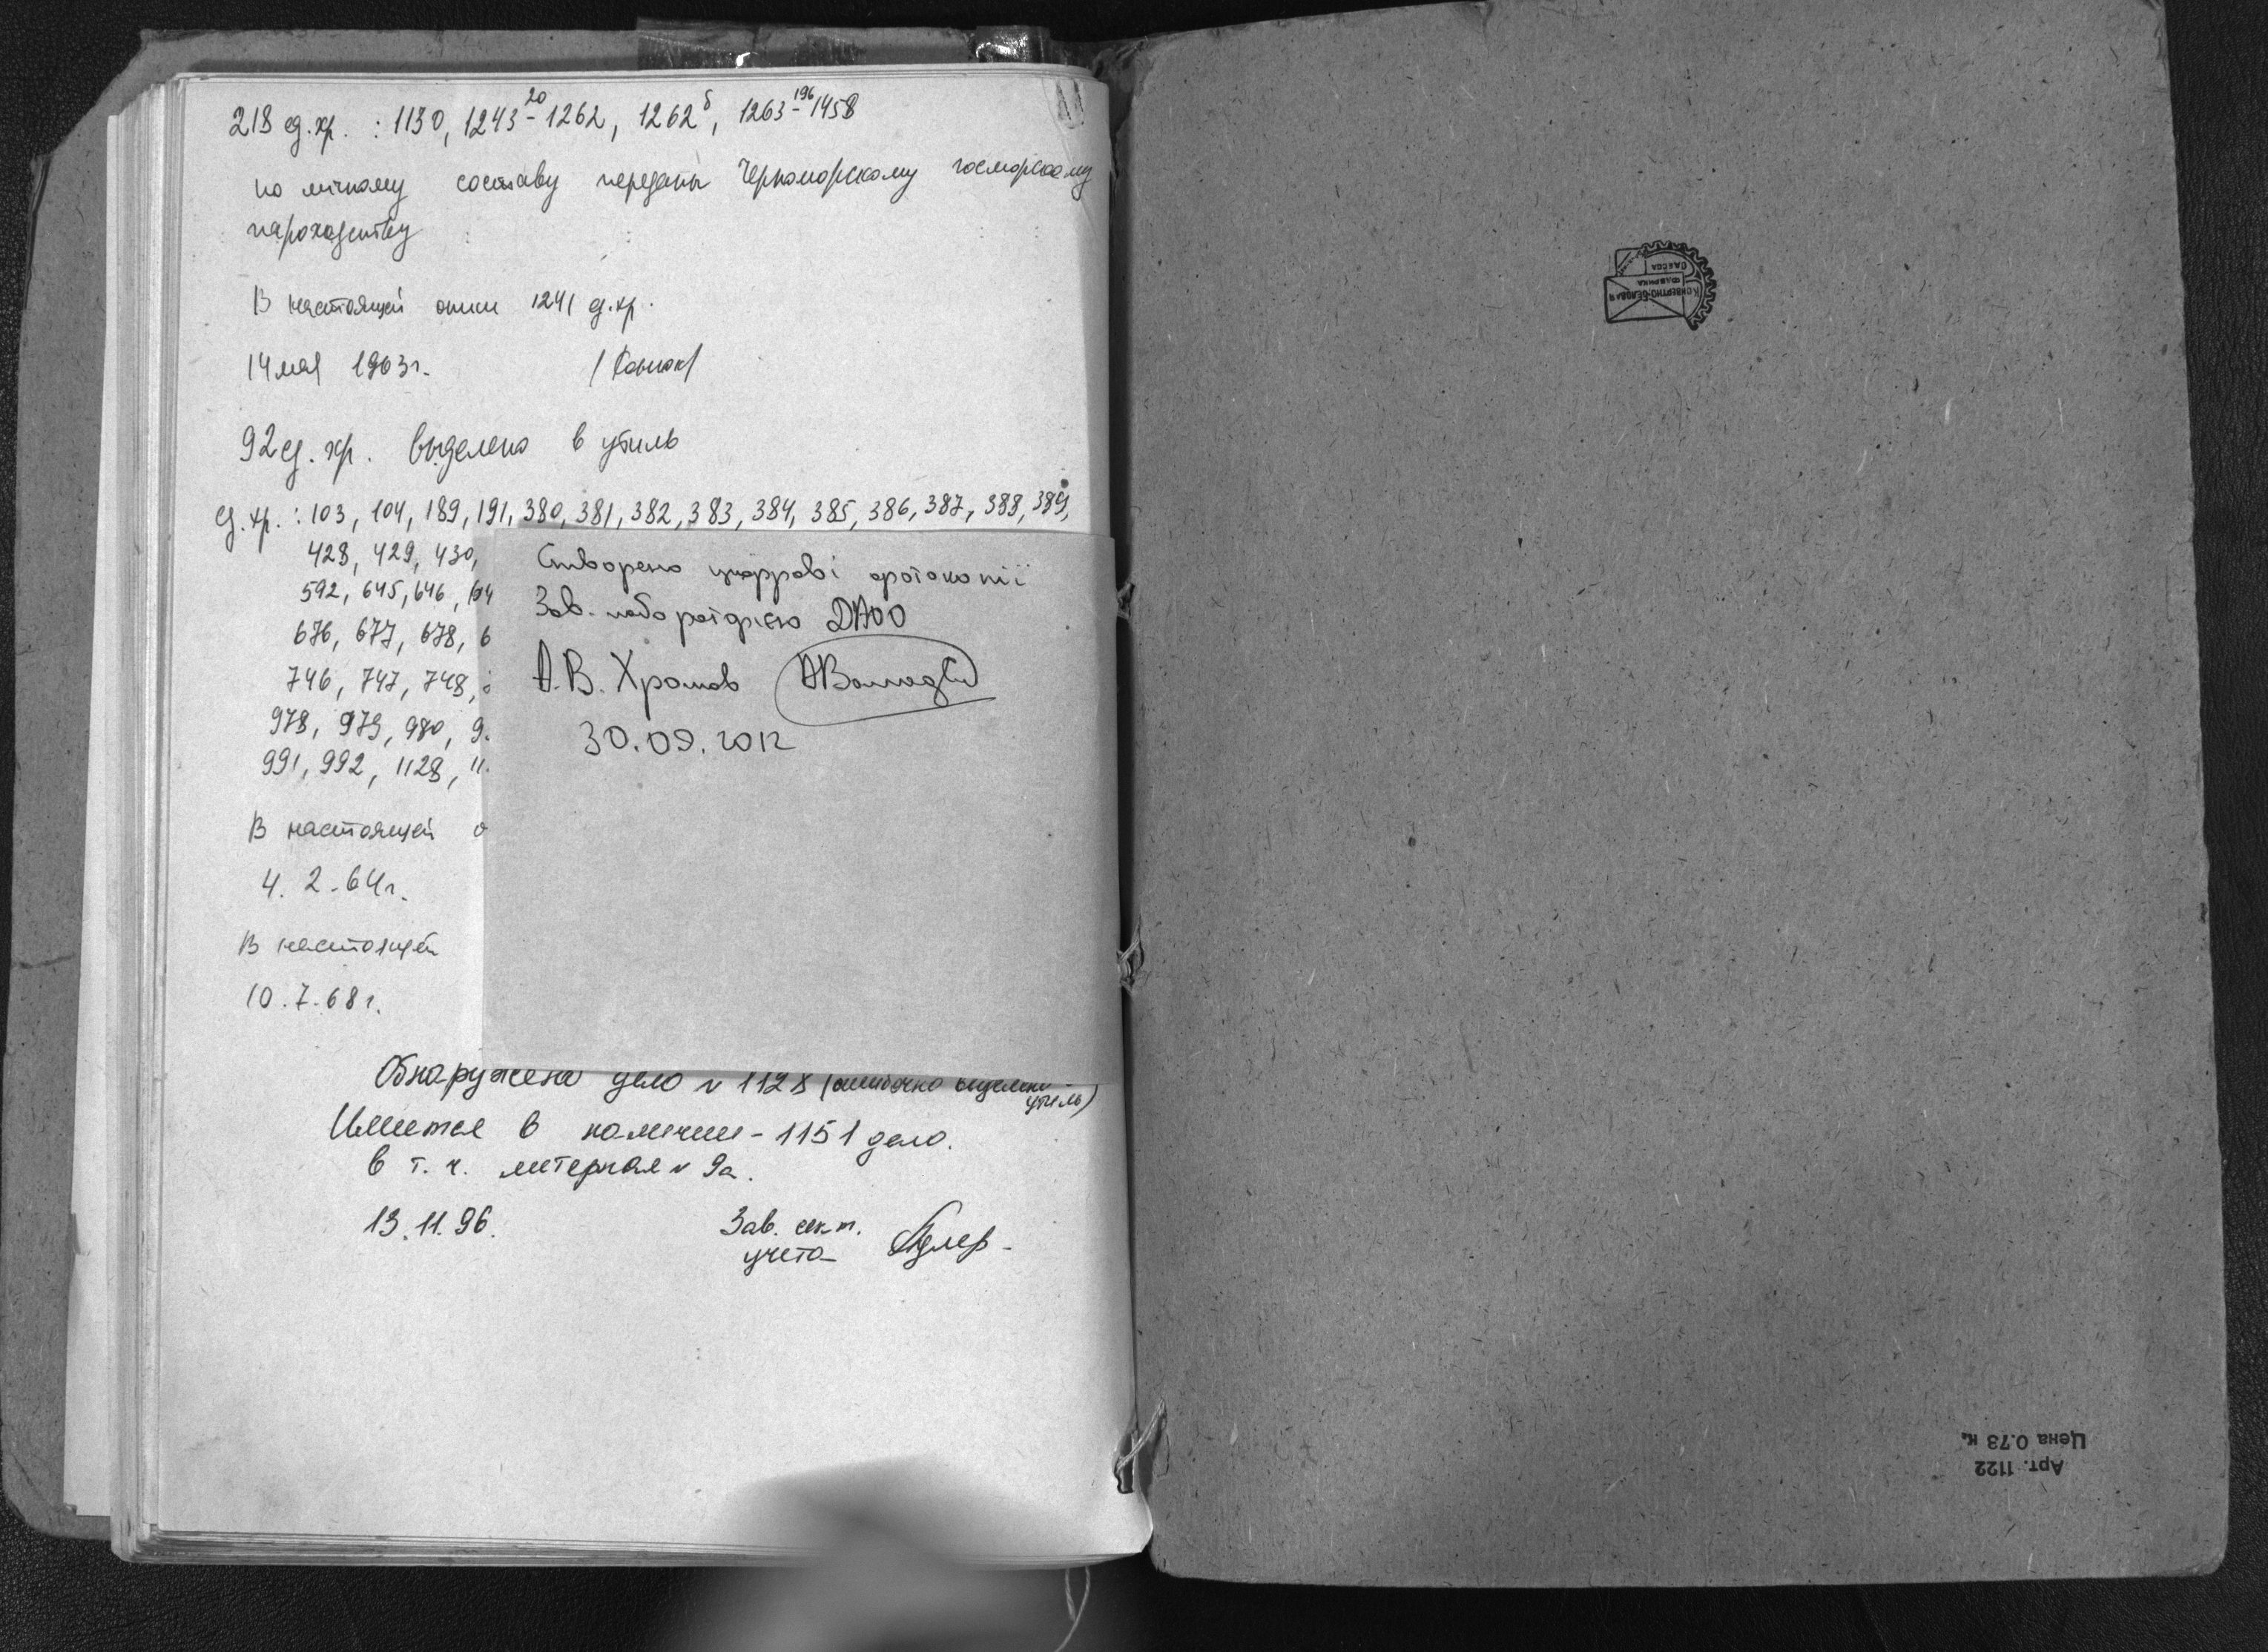 218 ед. хр. : 1130, 1243-²⁰1262, 1262ᵟ, 1263-¹⁹⁶1458
по личному составу переданы Черноморскому госморскому
пароходству
В настоящей описи 1241 ед. хр.
14 мая 1963 г.
92 ед. хр. выделено в утиль
ед. хр. : 103, 104, 189, 191, 380, 381, 382, 383, 384, 385, 386, 387, 388, 389,
428, 429, 430,
592, 645, 646,
676, 677, 678, 6
746, 747, 748,
978, 979, 980, 9
991, 992, 1128, 11
В настоящей о
4. 2. 64 г.
В настоящей
10. 7. 68 г.
Створено цифрові фотокопії
Зав. лабораторією ДАОО
А.В. Хромов
30.09.2012
Обнаружено дело № 1128 (ошибочно выделено
утиль)
Имеется в наличии - 1151 дело.
в т. ч. литерная № 9а.
13. 11. 96.
Зав. сект.
учета
Одесса
Фабрика
Конвертно-беловая
Арт. 1122
Цена 0.73 к.